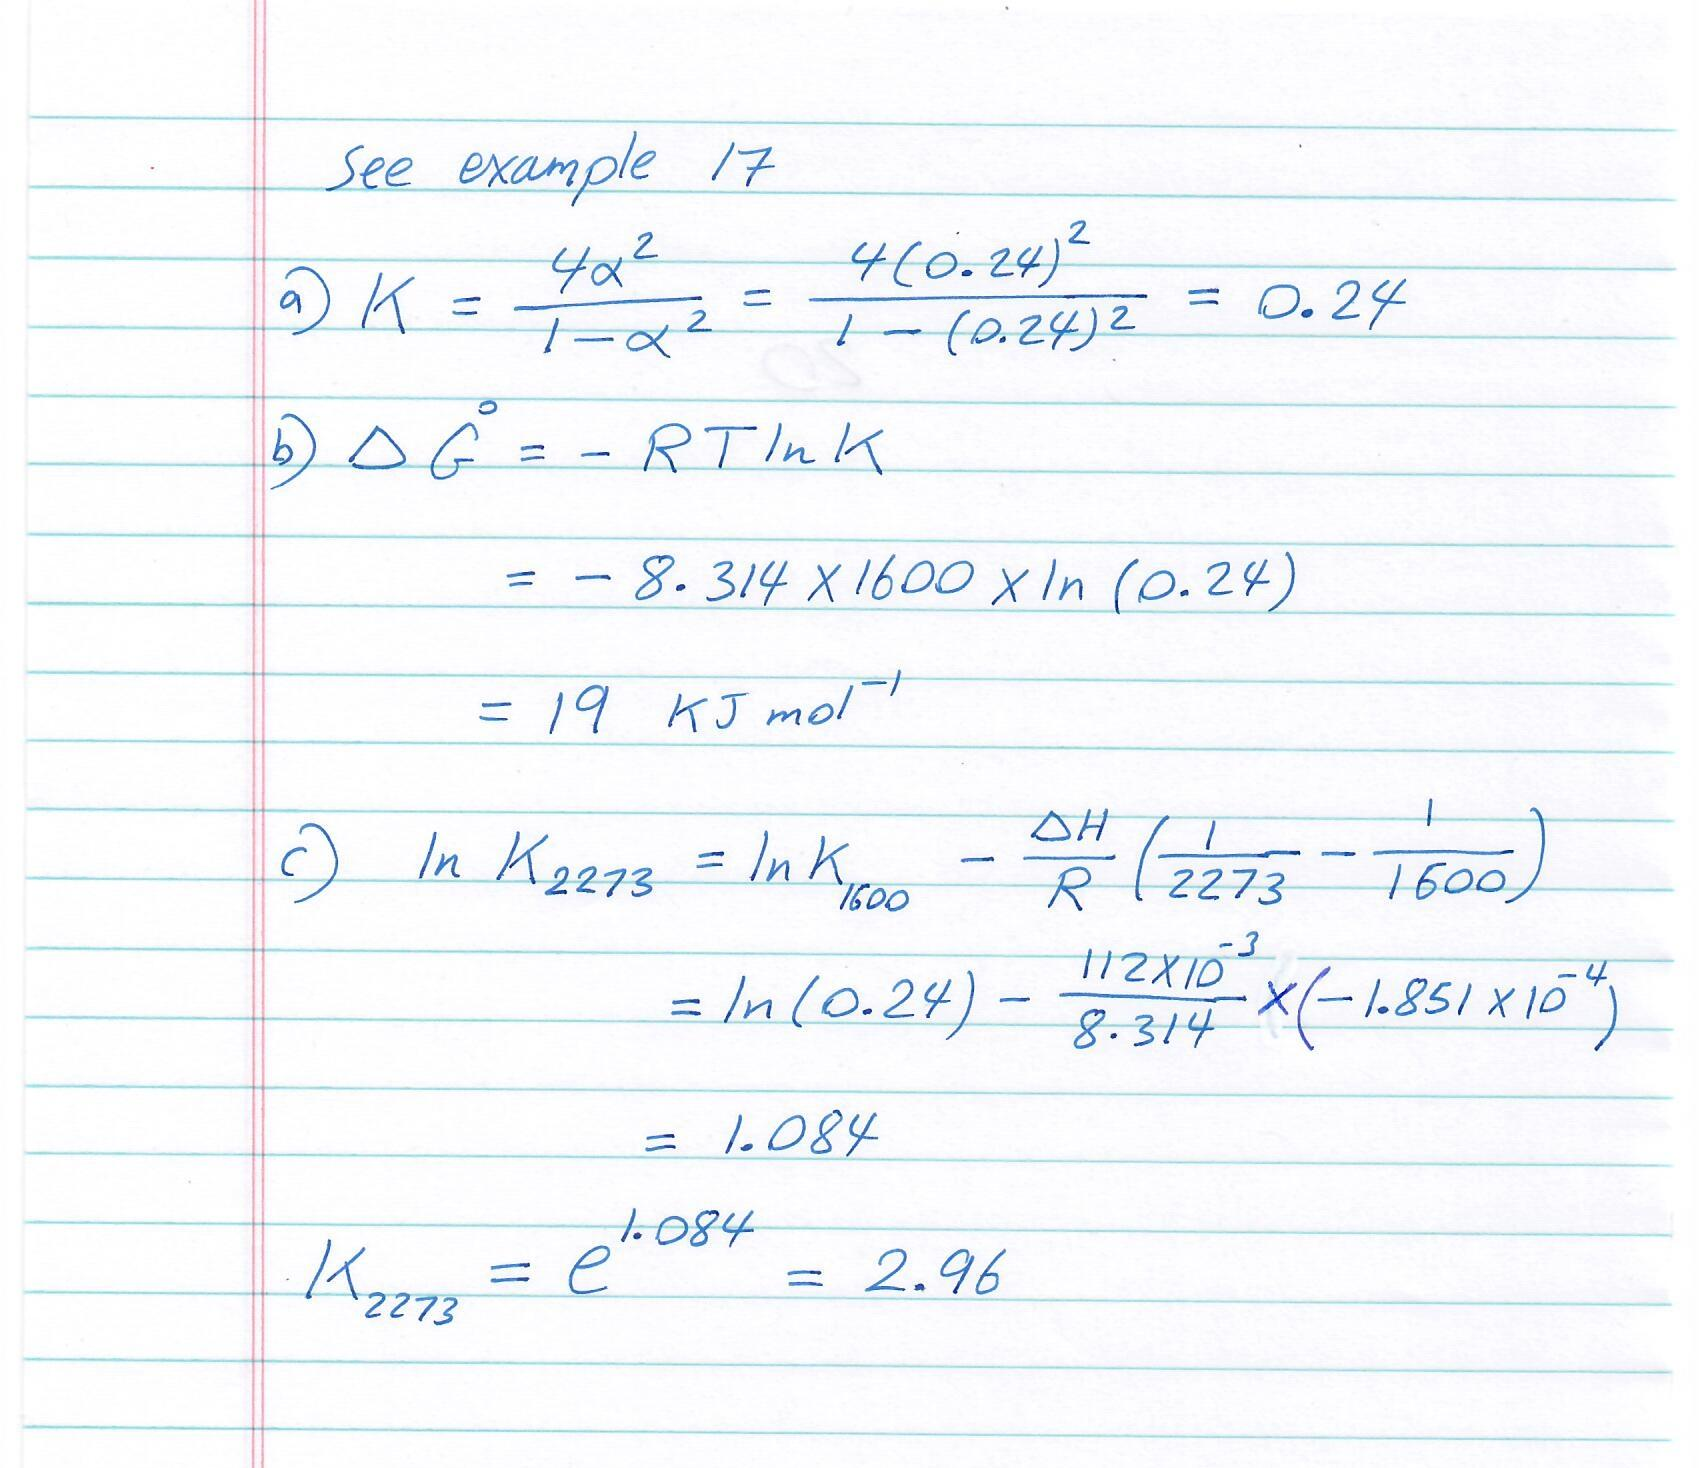 See example 17
a) K = 4α²/(1-α²) = 4(0.24)²/(1-(0.24)²) = 0.24
b) ΔG° = - RT ln K
= - 8.314 X 1600 X ln (0.24)
= 19 KJ mol⁻¹
c) ln K₂₂₇₃ = ln K₁₆₀₀ - ΔH/R (1/2273 - 1/1600)
= ln (0.24) - 112X10⁻³/8.314 X (-1.851 X 10⁻⁴)
= 1.084
K₂₂₇₃ = e^1.084 = 2.96